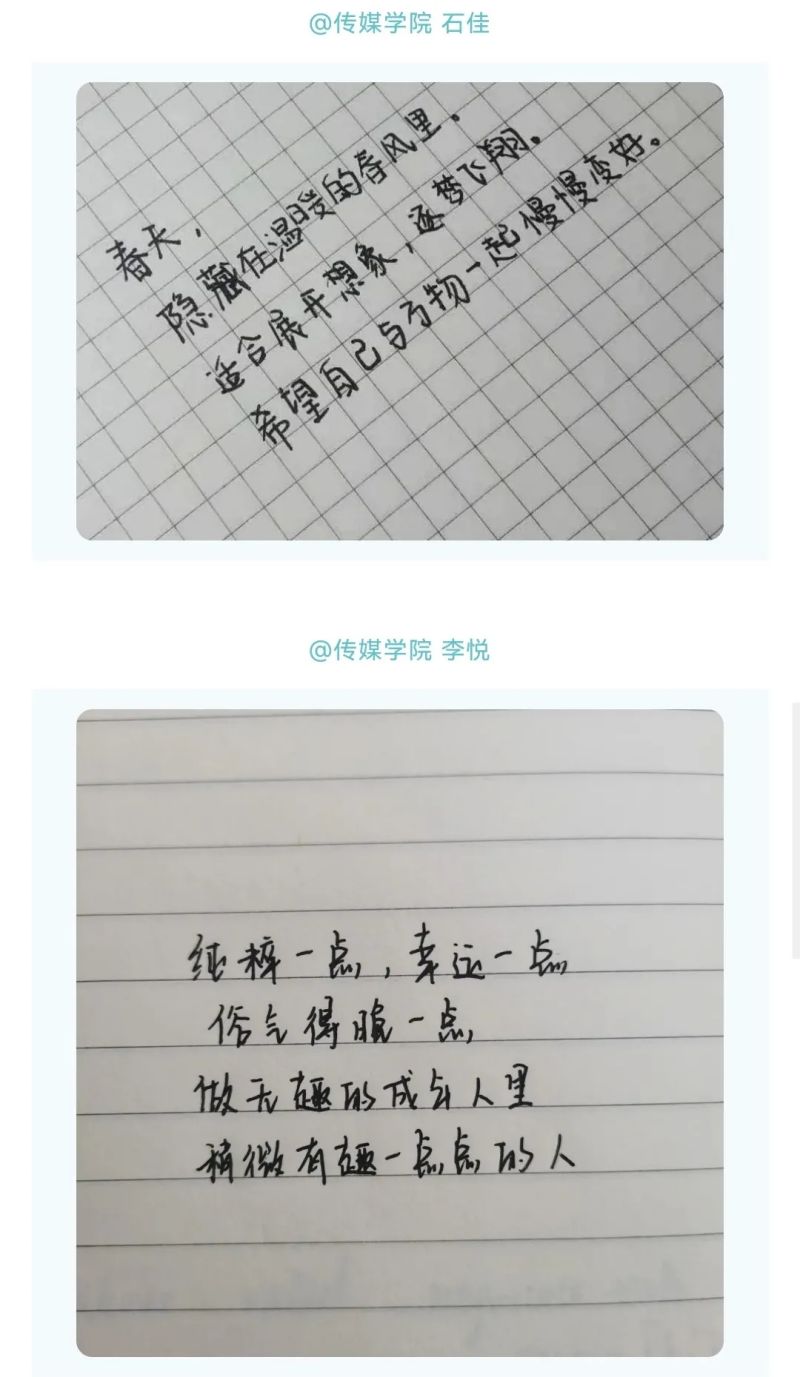 @传媒学院 石佳
春天，
隐藏在温暖的春风里。
适合展开想象，逐梦飞翔。
希望自己与万物一起慢慢变好。
@传媒学院 李悦
纯粹一点，幸运一点
俗气得晚一点
做无趣的成年人里
稍微有趣一点点的人